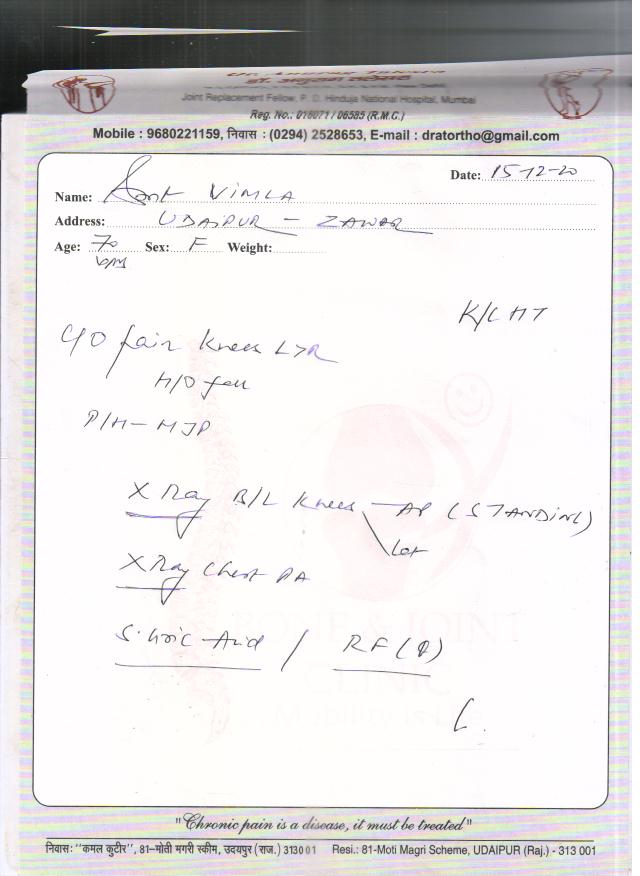 Joint Replacement Fellow, P. D. Hinduja National Hospital, Mumbai
Reg. No.: 016071 / 06585 (R.M.C.)
Mobile : 9680221159, निवास : (0294) 2528653, E-mail : dratortho@gmail.com
Date: 15-12-20
Name: Smt VIMLA
Address: UDAIPUR - ZAWAR
Age: 70 Sex: F Weight:
K/C HT
C/O Pain Knees L>R
H/O fall
P/H -
X Ray B/L Knees - AP (STANDING)
Lat
X Ray Chest PA
S. Uric Acid / RF (Q)
BONE & JOINT
CLINIC
"Chronic pain is a disease, it must be treated"
निवास: "कमल कुटीर", 81-मोती मगरी स्कीम, उदयपुर (राज.) 313001 Resi.: 81-Moti Magri Scheme, UDAIPUR (Raj.) - 313 001